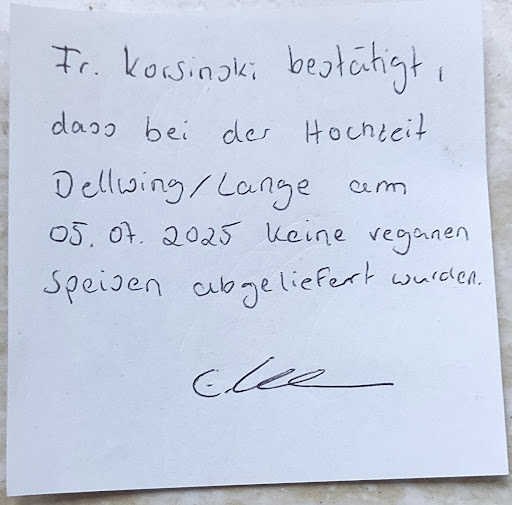 Fr. Korsinski bestätigt,
dass bei der Hochzeit
Dellwing/Lange am
05.07.2025 keine veganen
Speisen abgeliefert wurden.